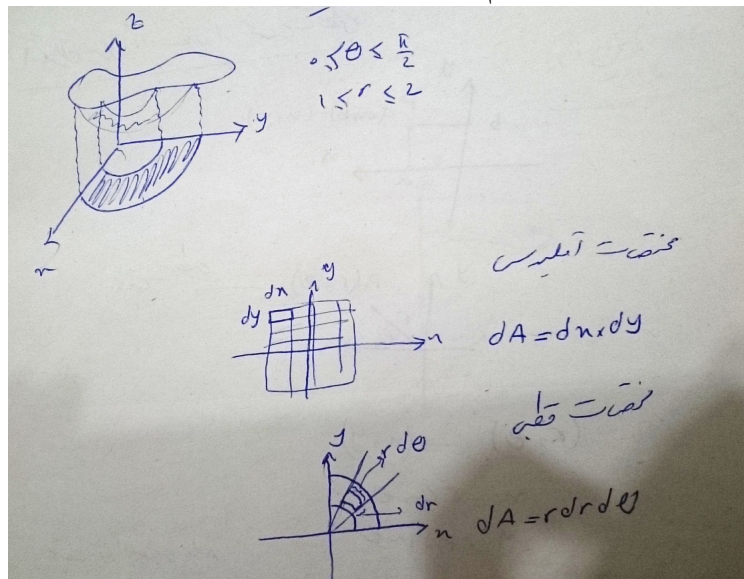 z
0 ≤ θ ≤ π/2
1 ≤ r ≤ 2
y
x
مختصات اقلیدسی
y
dx
dy
x
dA = dx × dy
مختصات قطبی
y
r dθ
dr
x
dA = r dr dθ